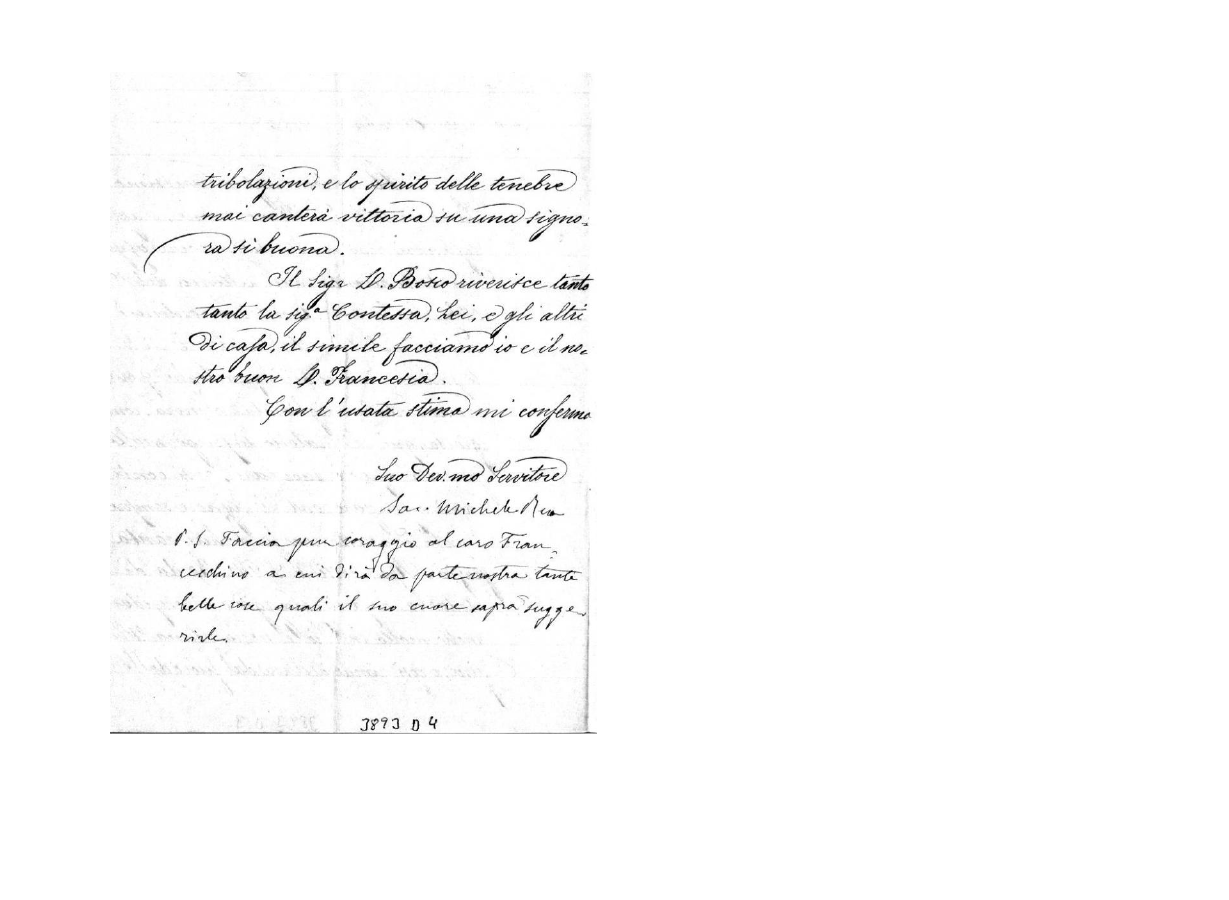 tribolazioni, e lo spirito delle tenebre
mai canterà vittoria su una signo=
ra sì buona.
Il Sigr D. Bosco riverisce tanto
tanto la sig.a Contessa, Lei, e gli altri
di casa, il simile facciamo io e il no=
stro buon D. Francesia.
Con l'usata stima mi confermo
Suo Dev.mo Servitore
Sac. Michele Rua
P. S. Faccia pur coraggio al caro Fran=
cechino a cui dirà da parte nostra tante
belle cose quali il suo cuore saprà sugge
rirle.
3893 D 4